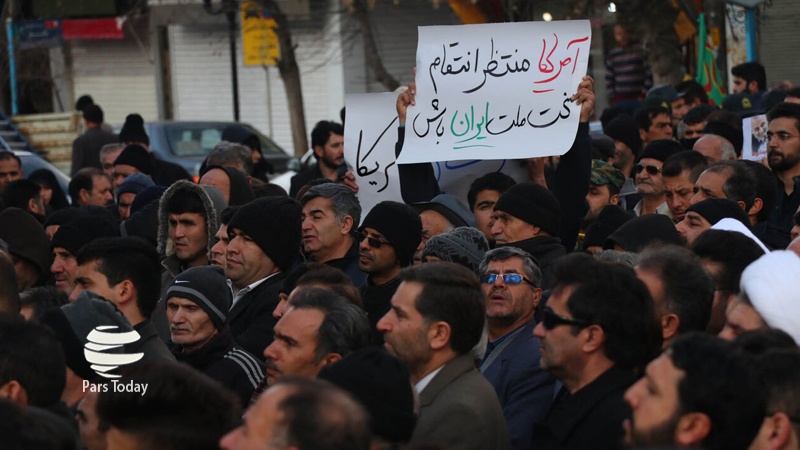 آمریکا منتظر انتقام
سخت ملت ایران باش
Pars Today